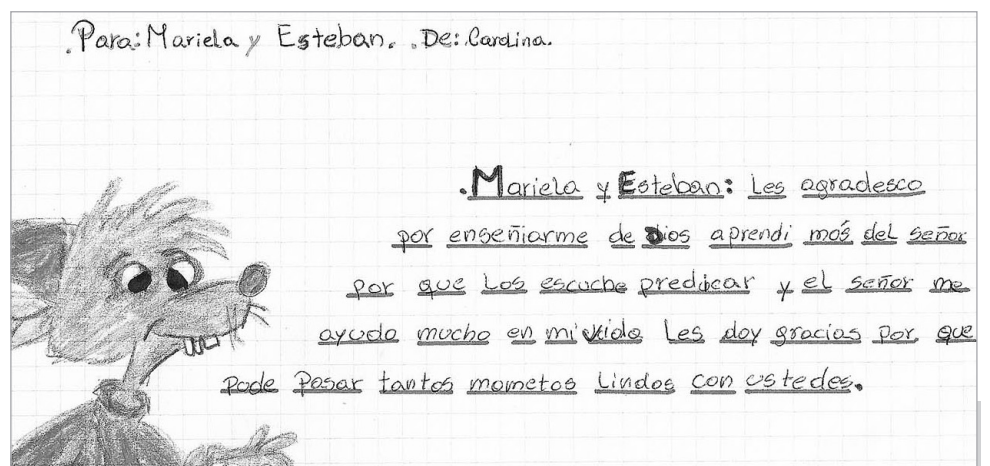 .Para: Mariela y Esteban. .De: Carolina.
.Mariela y Esteban: Les agradesco
por enseñiarme de Dios aprendi más del señor
por que Los escuche predicar y el señor me
ayudo mucho en mi vida Les doy gracias por que
pude Pasar tantos mometos Lindos con ustedes.